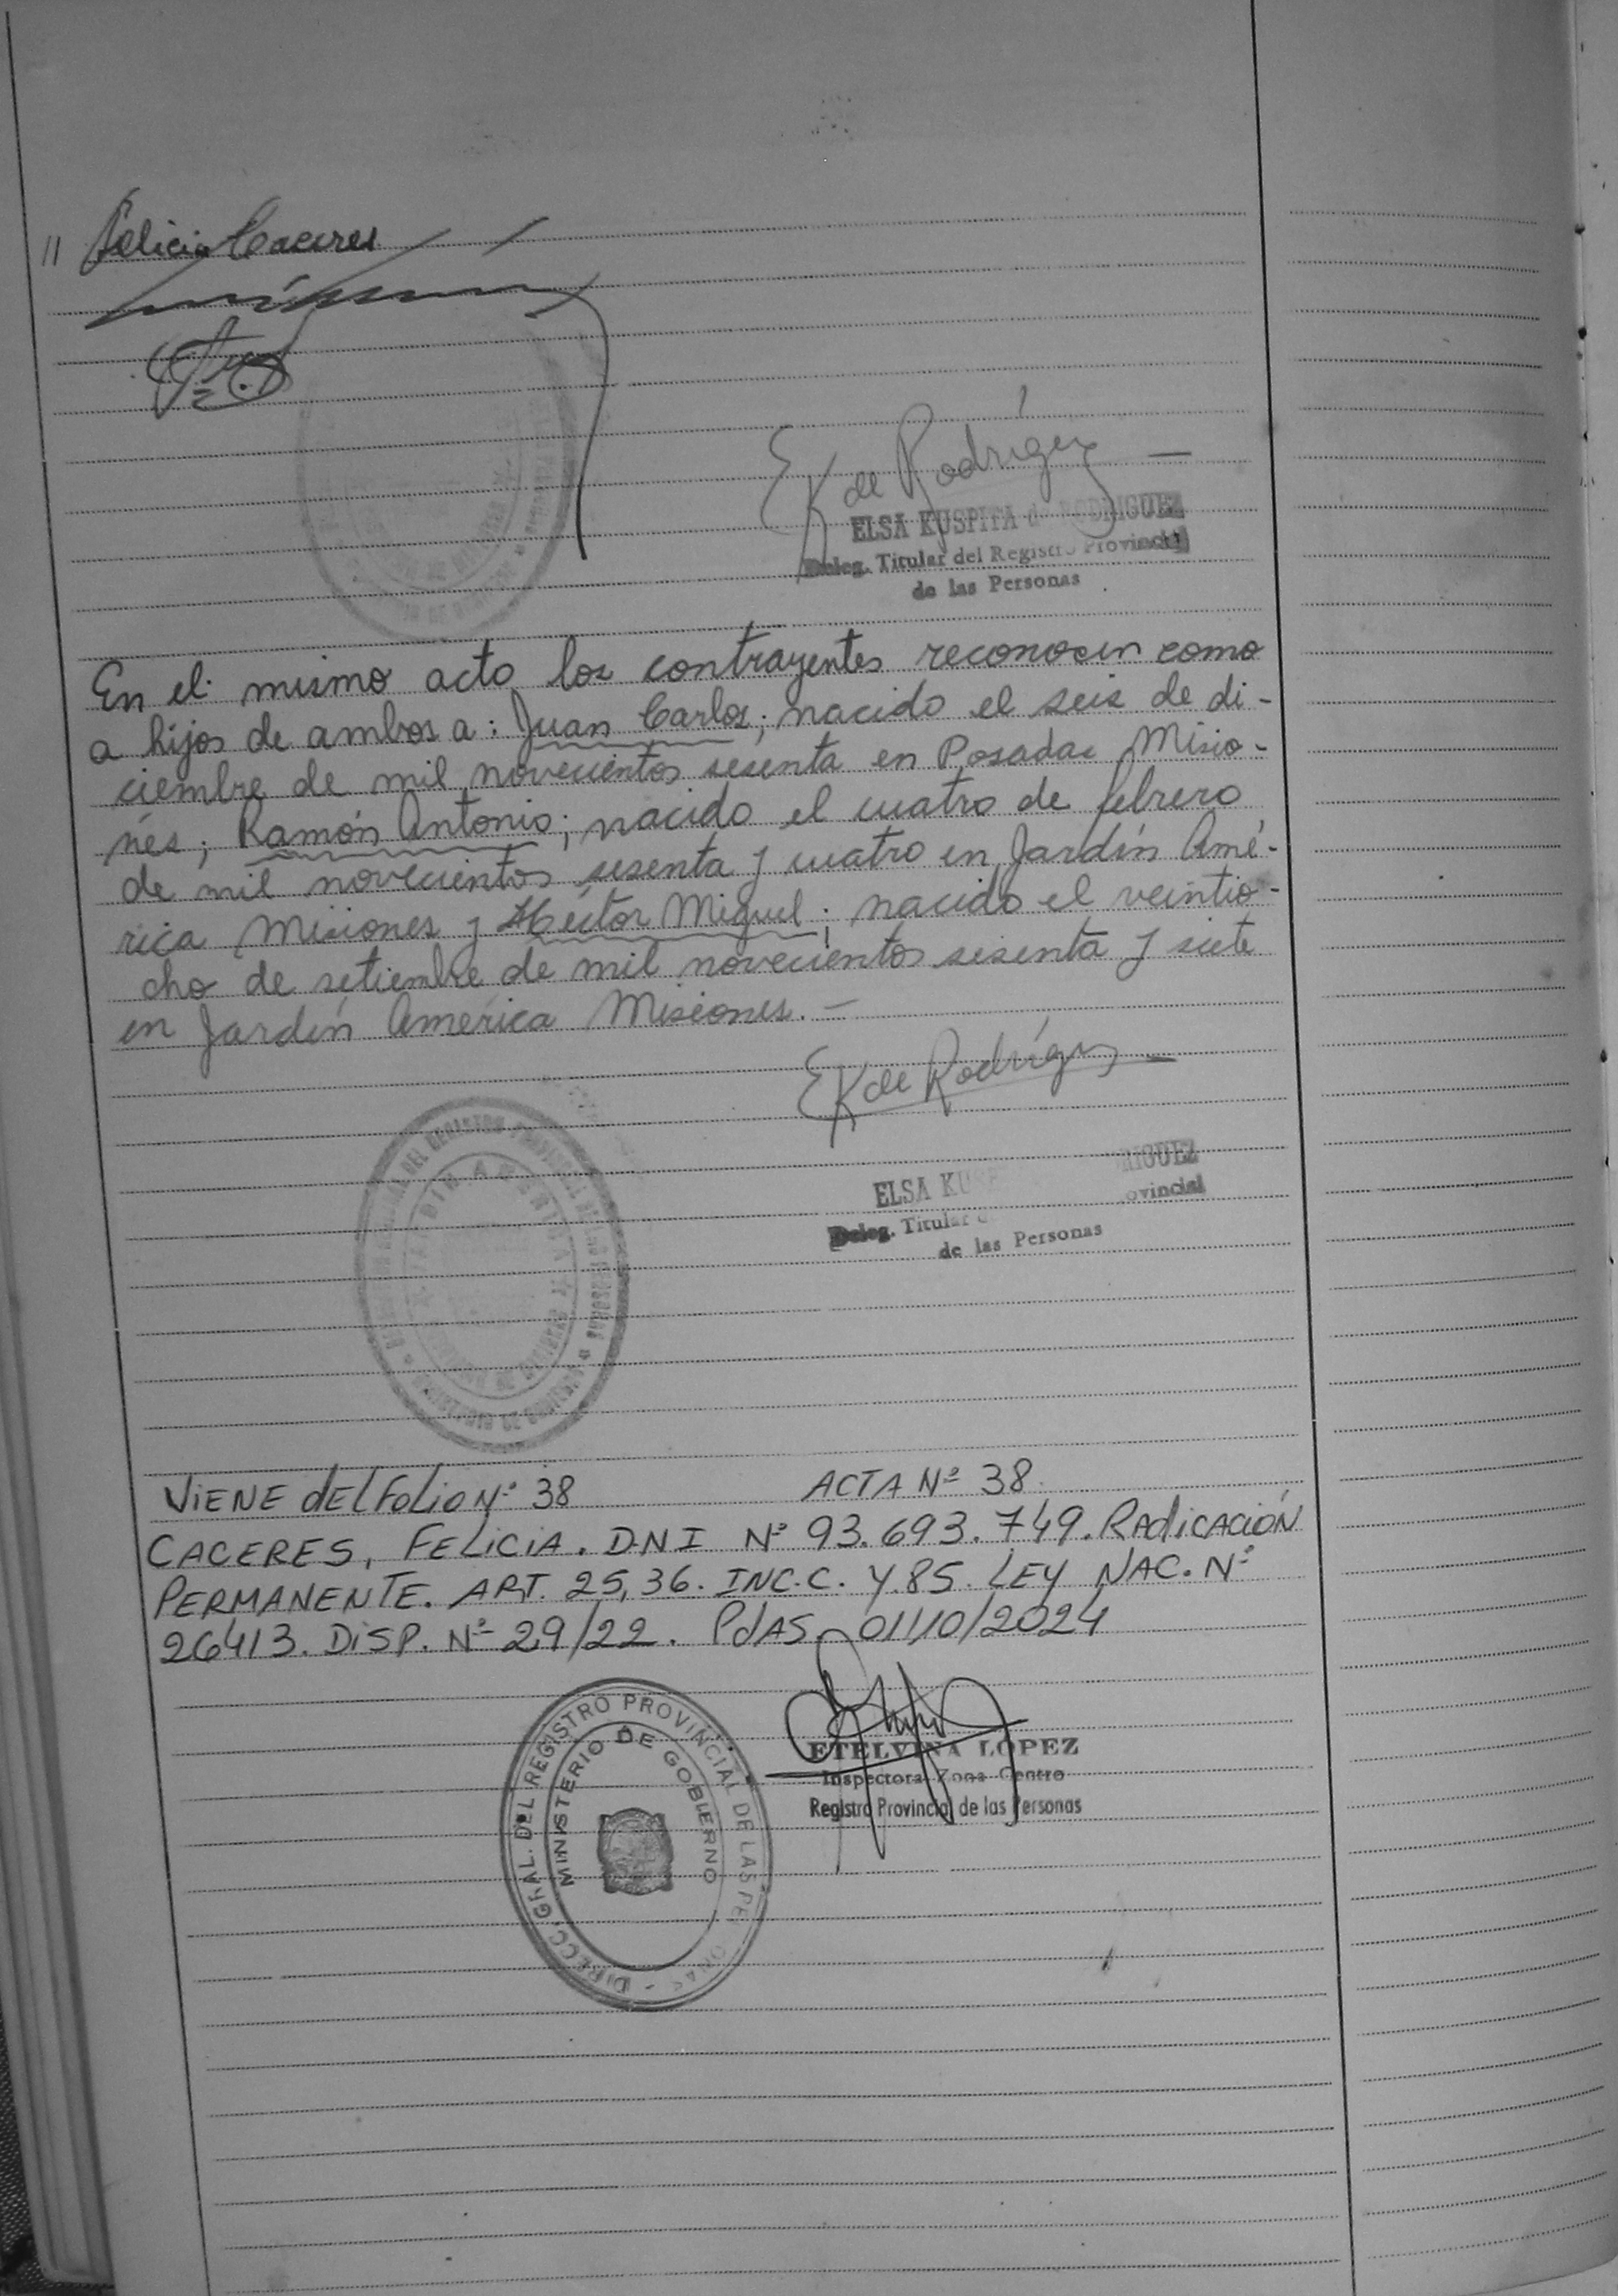 // Felicia Caceres
EK de Rodríguez
ELSA KUSPITA de RODRIGUEZ
Deleg. Titular del Registro Provincial
de las Personas
En el mismo acto los contrayentes reconocen como
a hijos de ambos a: Juan Carlos; nacido el seis de di-
ciembre de mil novecientos sesenta en Posadas Misio-
nes; Ramón Antonio; nacido el cuatro de febrero
de mil novecientos sesenta y cuatro en Jardín Amé-
rica Misiones y Héctor Miguel; nacido el veintio-
cho de setiembre de mil novecientos sesenta y siete
en Jardín América Misiones.-
EK de Rodríguez
ELSA KUSP IGUEZ
Deleg. Titular ovincial
de las Personas
VIENE del Folio Nº 38 ACTA Nº 38
CACERES, FELICIA. DNI Nº 93.693.749. RAdiCACIÓN
PERMANENTE. ART. 25, 36. INC.C. Y.85. LEY NAC. Nº
26413. DISP. Nº 29/22. PdAS. 01/10/2024
ETELVINA LOPEZ
Inspectora Zona Centro
Registro Provincial de las Personas
DIRECC. GRAL. DEL REGISTRO PROVINCIAL DE LAS PE ONAS -
MINISTERIO DE GOBIERNO